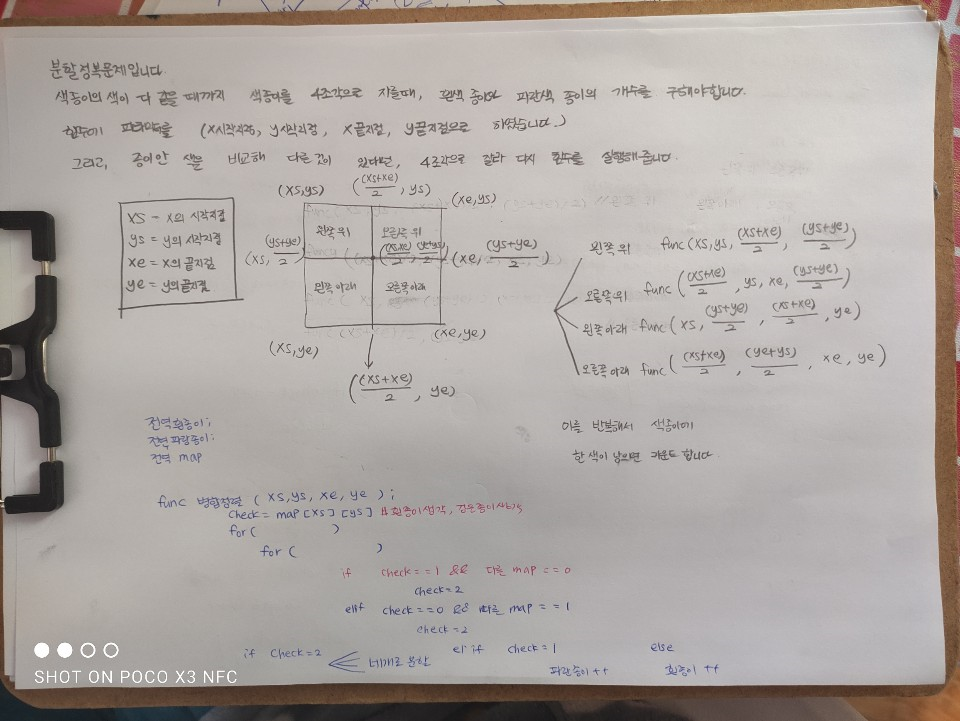 분할정복문제입니다.
색종이의 색이 다 같을 때까지 색종이를 4조각으로 자를때, 흰색 종이와 파란색 종이의 개수를 구해야합니다.
함수에 파라미터를 (x시작지점, y시작지점, x끝지점, y끝지점으로 하였습니다.)
그리고, 종이안 색을 비교해 다른것이 있다면, 4조각으로 잘라 다시 함수를 실행해줍니다.
(xs,ys) ((xs+xe)/2, ys) (xe,ys)
xs = x의 시작지점
ys = y의 시작지점
xe = x의 끝지점
ye = y의 끝지점
왼쪽 위 오른쪽 위
(xs, (ys+ye)/2) ((xs+xe)/2, (ye+ys)/2) (xe, (ys+ye)/2)
왼쪽 아래 오른쪽 아래
(xs,ye) (xe,ye)
((xs+xe)/2, ye)
왼쪽 위 func(xs,ys, (xs+xe)/2, (ys+ye)/2)
오른쪽 위 func((xs+xe)/2, ys, xe, (ys+ye)/2)
왼쪽 아래 func(xs, (ys+ye)/2, (xs+xe)/2, ye)
오른쪽 아래 func((xs+xe)/2, (ye+ys)/2, xe, ye)
이를 반복해서 색종이에
한 색이 남으면 카운트 합니다.
전역 흰종이;
전역 파랑종이;
전역 map
func 병합정렬 (xs,ys, xe, ye);
check = map[xs][ys]
for( )
for( )
if check==1 && 다른 map == 0
check=2
elif check==0 && 다른 map == 1
check=2
if check=2 네개로 분할
el if check=1
파란종이++
else
흰종이++
SHOT ON POCO X3 NFC